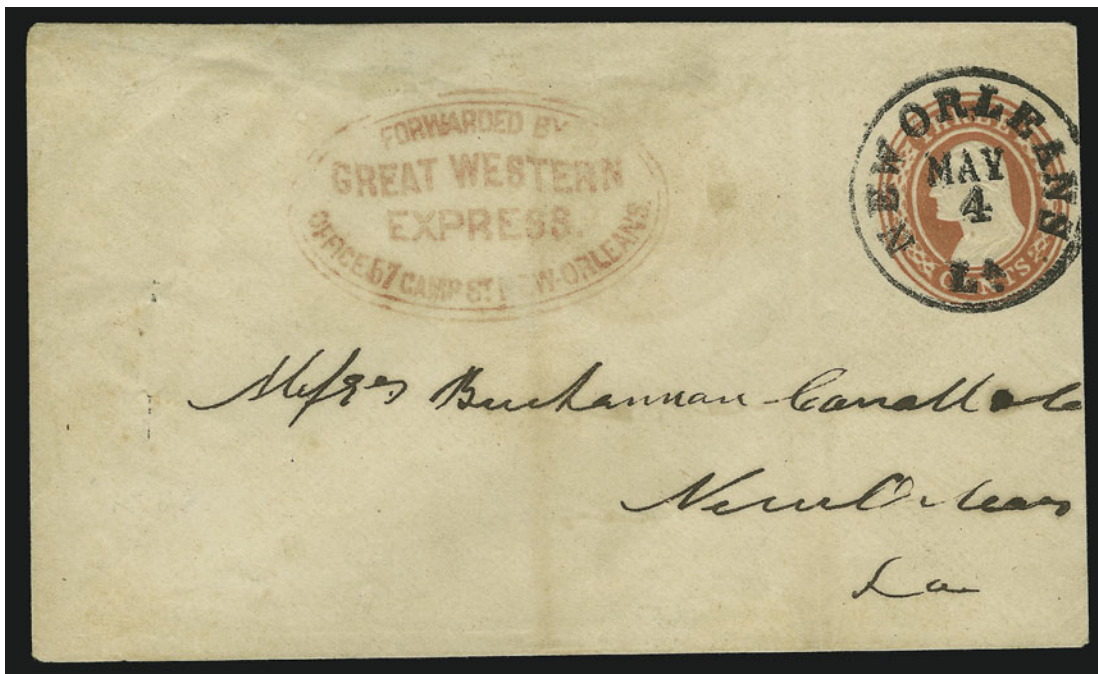 FORWARDED BY
GREAT WESTERN
EXPRESS.
OFFICE 57 CAMP ST NEW-ORLEANS.
NEW ORLEANS
MAY
4
LA
THREE
CENTS
Messrs Buchannan Carroll & Co
New Orleans
La